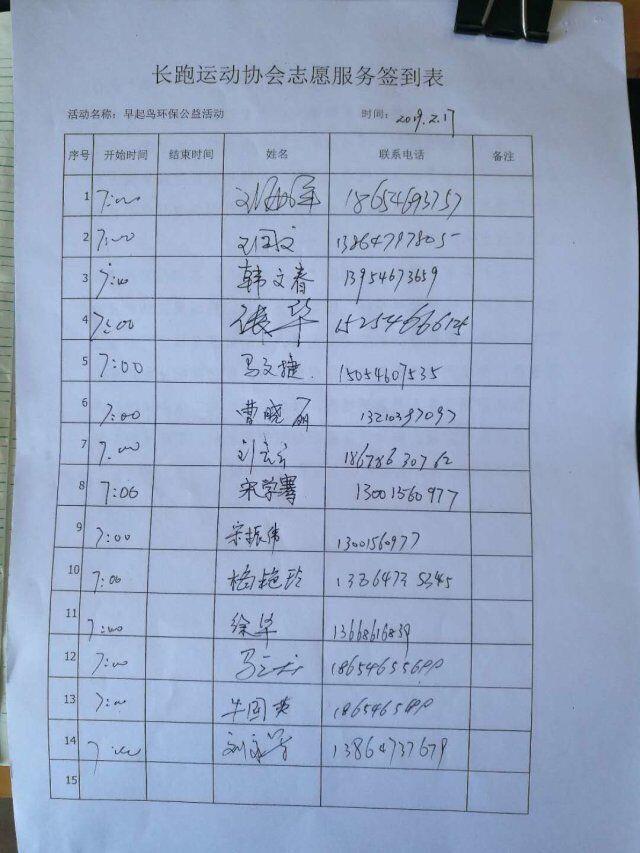 长跑运动协会志愿服务签到表
活动名称：早起鸟环保公益活动 时间：2019.2.17
序号 开始时间 结束时间 姓名 联系电话 备注
1 7:00 18654693757
2 7:00 刘国文 13864797805
3 7:00 韩文春 13954673659
4 7:00 张华 15254666125
5 7:00 马文捷 15054607535
6 7:00 曹晓丽 13210397097
7 7:00 18678630762
8 7:00 宋学骞 13001560977
9 7:00 宋振伟 13001560977
10 7:00 杨艳玲
11 7:00 徐华 13668616839
12 7:00
13 7:00 牛国英
14 7:00 刘永芳 13864737679
15